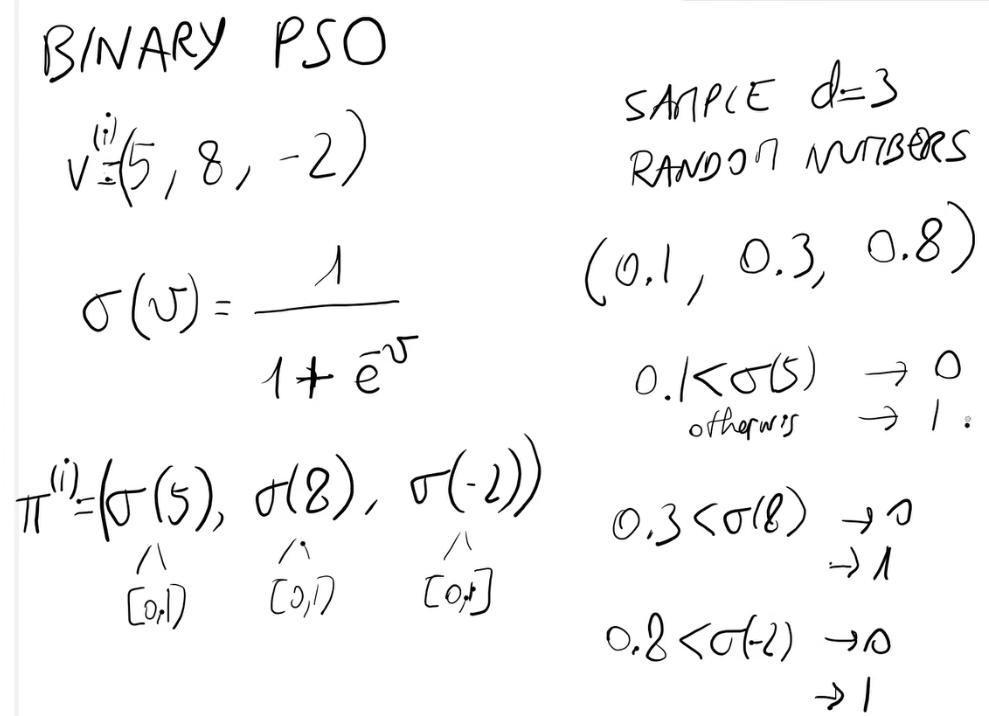 BINARY PSO
v⁽ⁱ⁾=(5, 8, -2)
σ(v) = 1 / (1 + e^-v)
π⁽ⁱ⁾=(σ(5), σ(8), σ(-2))
[0,1) [0,1) [0,1]
SAMPLE d=3
RANDOM NUMBERS
(0.1, 0.3, 0.8)
0.1<σ(5) → 0
otherwis → 1.
0.3<σ(8) → 0
→ 1
0.8<σ(-2) → 0
→ 1